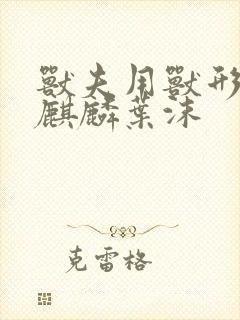 獸夫用獸形
麒麟葉沫
克雷格